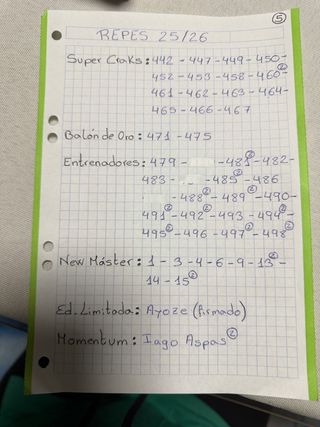 5
REPES 25/26
Super Craks: 442 - 447 - 449 - 450 -
452 - 453 - 458 - 460② -
461 - 462 - 463 - 464 -
465 - 466 - 467
Balón de Oro: 471 - 475
Entrenadores: 479 - - 481② - 482 -
483 - - 485② - 486
- 488② - 489② - 490 -
491② - 492② - 493 - 494② -
495② - 496 - 497② - 498②
New Máster: 1 - 3 - 4 - 6 - 9 - 13② -
14 - 15②
Ed. Limitada: Ayoze (firmado)
Momentum: Iago Aspas②